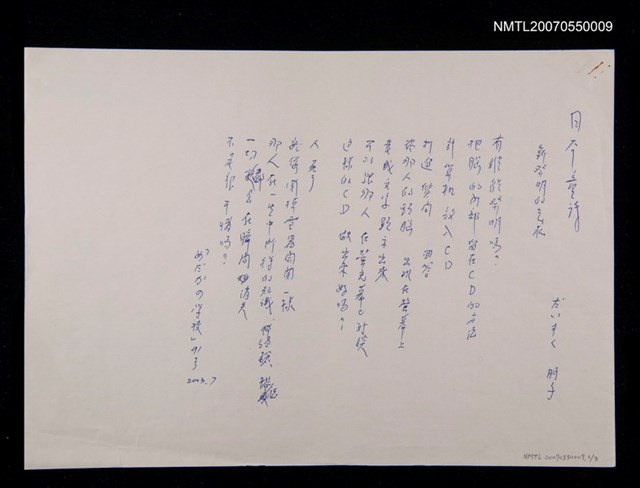 NMTL20070550009
日本童詩
新發明的請求
だいすく 朋子
有誰能發明嗎?
把腦的內部 留在CD的方法
計算機 放入CD
打進 質問 回答
那人的頭腦 出現在螢幕上
變成文字顯示出來
可以跟那人 在螢光幕上討談
這樣的CD 做出來好嗎?
人 死了
就像關掉電器開關一樣
那人在一生中所得的知識、經驗、
一切 會在瞬間 消失
不是很可惜嗎?
「めだかの学校」
2003.7
NMTL 20070550009, 1/3